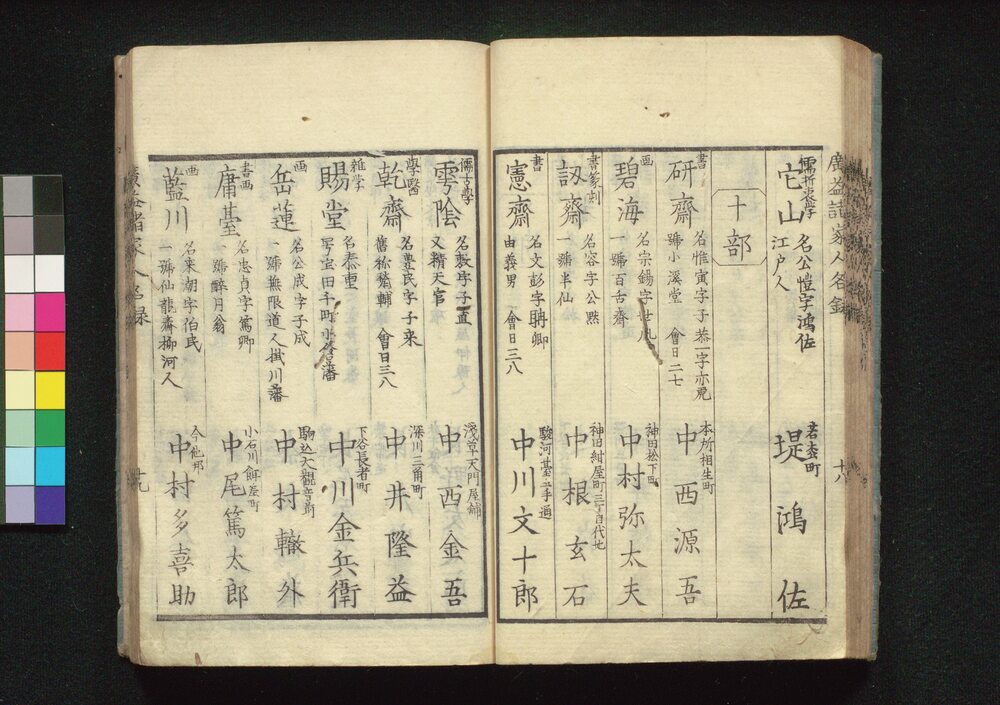 廣益諸家人名録
十八
儒折衷学
它山
名公愷字鴻佐
江戸人
堤鴻佐
十部
書
研齋
名惟寅字子恭一字亦虎
號小溪堂 會日二七
本所相生町
中西源吾
画
碧海
名宗錫字世凡
一號百舌齋
神田松下町
中村弥太夫
書篆刻
訒齋
名容字公黙
一號半仙
神田紺屋町三丁目代地
中根玄石
書
憲齋
名文彭字聘卿
由義男 會日三八
駿河臺
中川文十郎
儒古學
雩陰
名毅字子直
又精天官
浅草天門屋鋪
中西金吾
學醫
乾齋
名豊民字子来
舊称鷲輔 會日三八
深川三角町
中井隆益
雑学
賜堂
名泰重
下谷長者町
中川金兵衛
画
岳蓮
名公成字子成
一號無限道人掛川藩
駒込大觀音前
中村轍外
書画
庸臺
名忠貞字篤卿
一號醉月翁
小石川餌差町
中尾篤太郎
画
藍川
名来潮字伯民
一號仙龍齋柳河人
今他邦
中村多喜助
廣益諸家人名録
十九